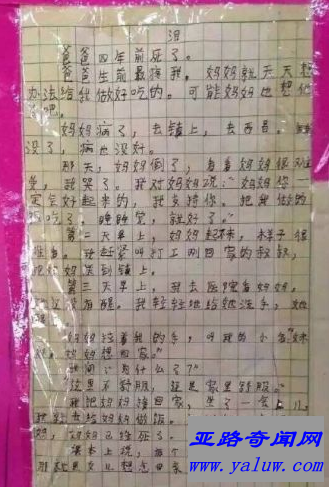 泪
爸爸四年前死了。
爸爸生前最疼我，妈妈就天天想
办法给我做好吃的。可能妈妈也想他
了吧。
妈妈病了，去镇上，去西昌。钱
没了，病也没好。
那天，妈妈倒了，看着妈妈很难
受，我哭了。我对妈妈说：“妈妈你一
定会好起来的，我支持你。把我做的
饭吃了，睡睡觉，就好了。”
第二天早上，妈妈起不来，样子很
难看。我赶紧叫打工刚回家的叔叔，
把妈妈送到镇上。
第三天早上，我去医院看妈妈，
她还没有醒。我轻轻地给她洗手，她
妈妈拉着我的手，叫我的小名“妹
妹，妈妈想回家。”
我问：“为什么了？”
“这里不舒服，还是家里舒服。”
我把妈妈接回家，坐了一会儿，
我就去给妈妈做饭。
妈妈已经死了。
课本上说，
那就是女儿想念母亲
亚路奇闻网
www.yaluw.com